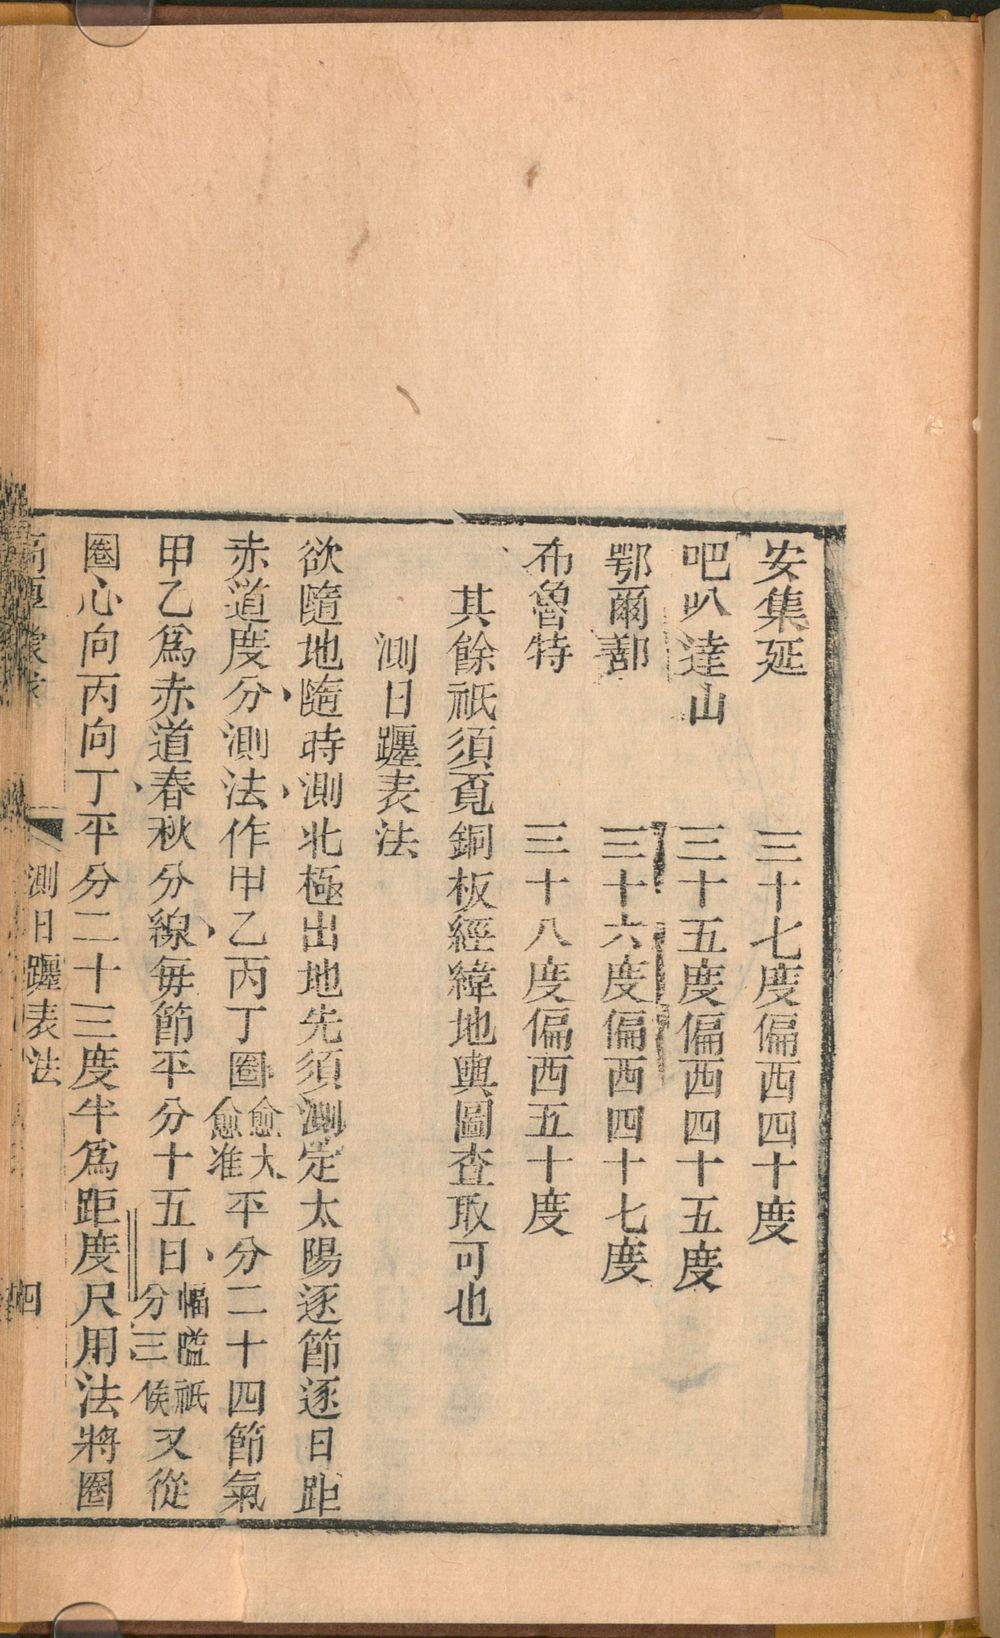 安集延　三十七度偏西四十度
吧叭達山　三十五度偏西四十五度
鄂爾鄯　三十六度偏西四十七度
布魯特　三十八度偏西五十度
其餘祇須覓銅板經緯地輿圖查取可也
測日躔表法
欲隨地隨時測北極出地先須測定太陽逐節逐日距
赤道度分、測法、作甲乙丙丁圈愈大愈准平分二十四節氣
甲乙爲赤道春秋分線、每節平分十五日、幅隘祇分三候又從
圈心向丙向丁、平分二十三度半爲距度尺用法將圈
測日躔表法
四